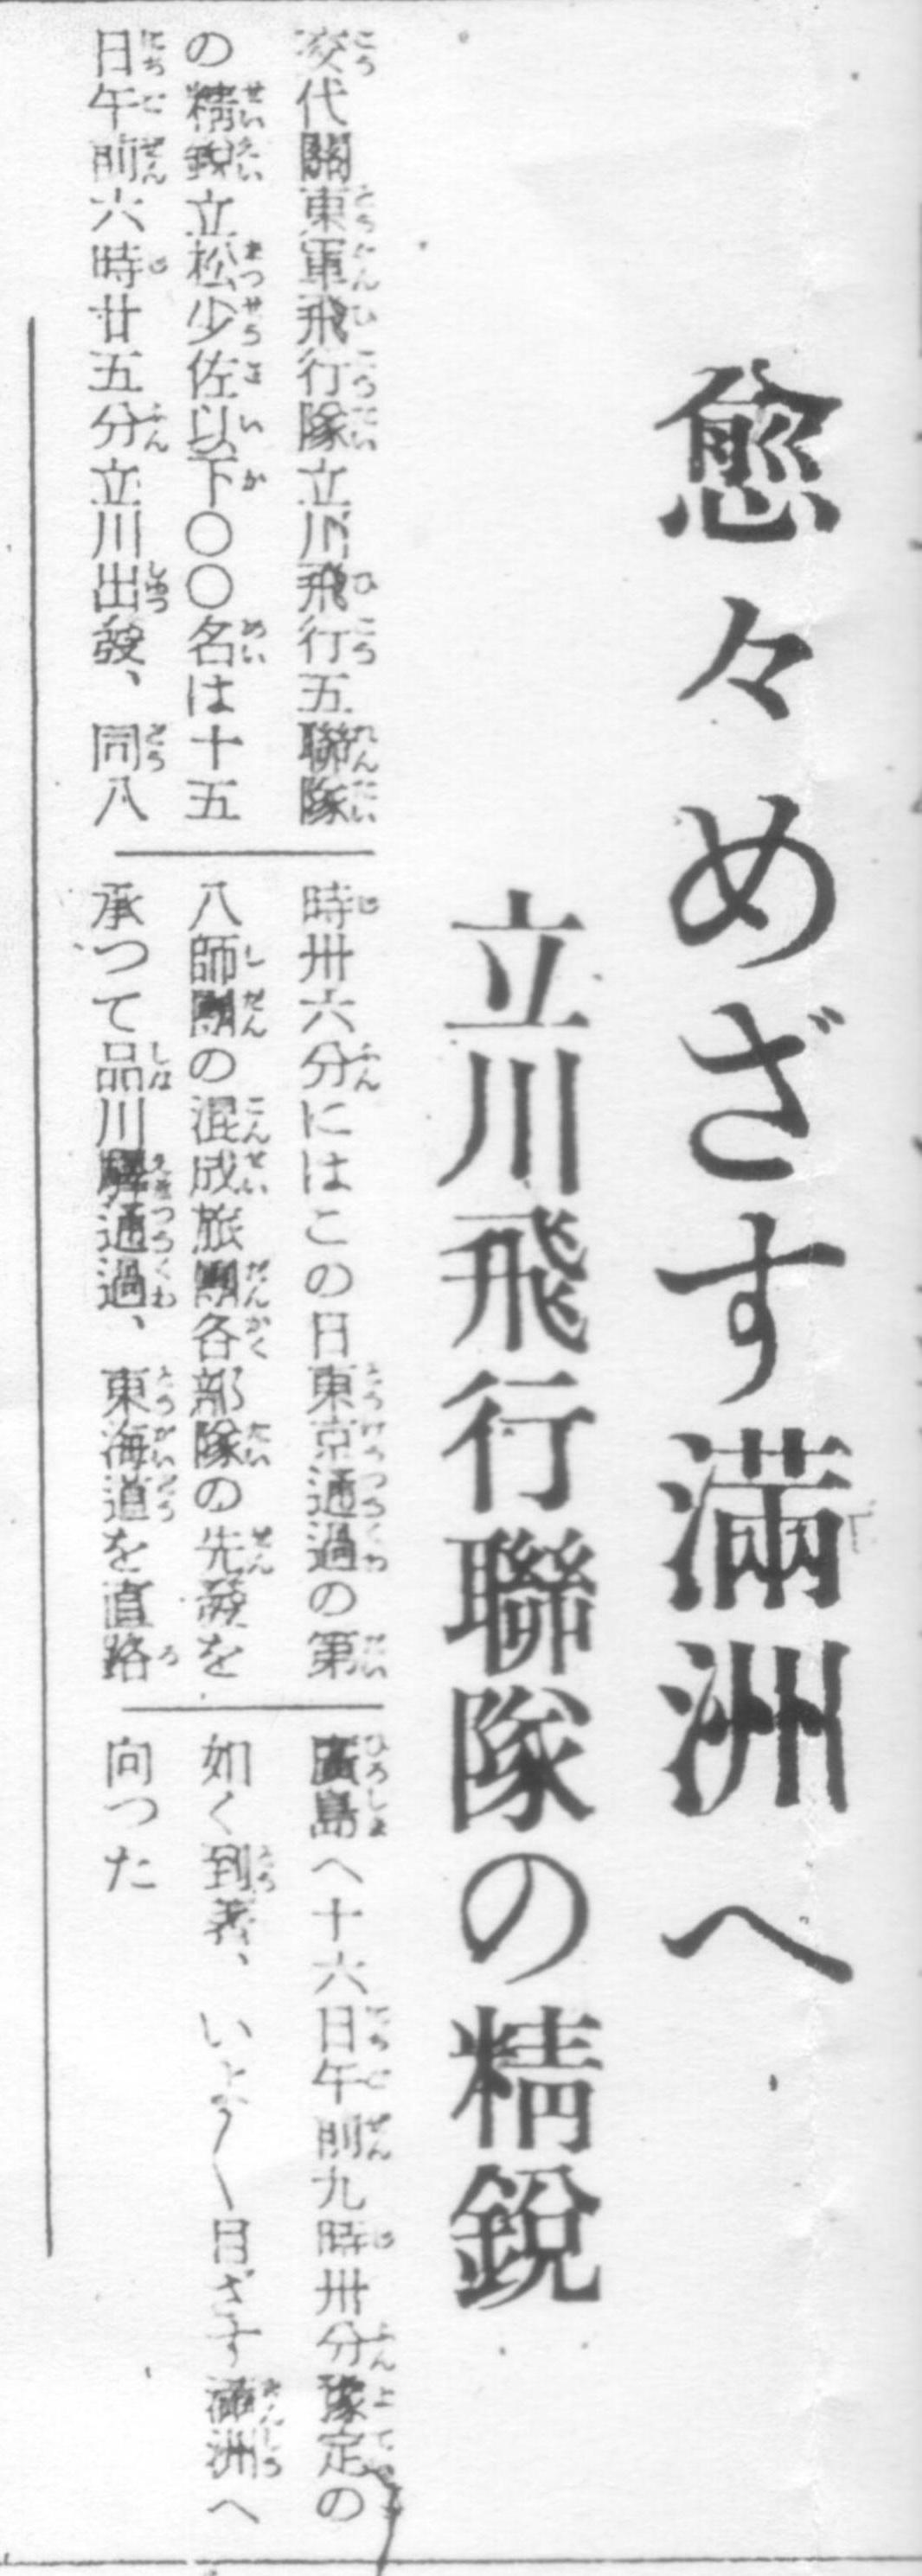 愈々めざす滿洲へ
立川飛行聯隊の精鋭
交代關東軍飛行隊立川飛行五聯隊
の精鋭立松少佐以下〇〇名は十五
日午前六時廿五分立川出發、同八
時卅六分にはこの日東京通過の第
八師團の混成旅團各部隊の先發を
承つて品川驛通過、東海道を直路
廣島へ十六日午前九時卅分豫定の
如く到著、いよ〱目ざす滿洲へ
向つた